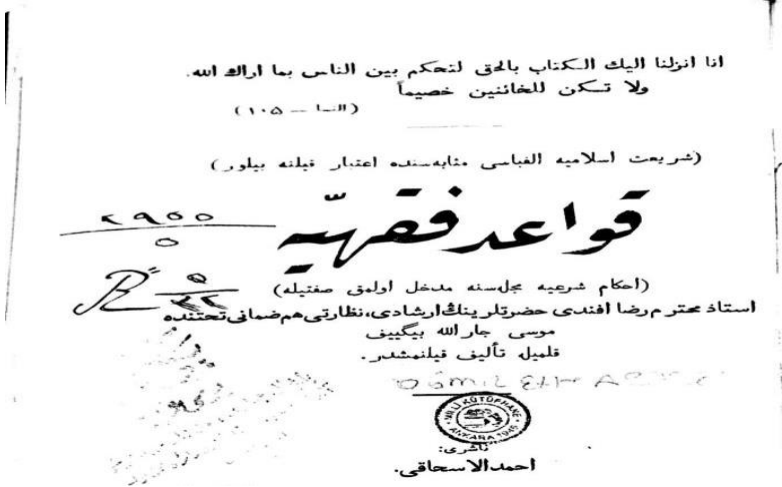 انا انزلنا اليك الكتاب بالحق لتحكم بين الناس بما اراك الله.
ولا تكن للخائنين خصيماً
(النسا — ١٠٥)
(شريعت اسلاميه الفباسى مثابه‌سنده اعتبار قيلنه بيلور)
قواعد فقهيّه
٢٩٥٥
٥
(احكام شرعيه مجله‌سنه مدخل اولمق صفتيله)
استاذ محترم رضا افندى حضرتلرينڭ ارشادى، نظارتى هم ضمانى تحتنده
موسى جار الله بيگييف
قلميل تأليف قيلنمشدر.
MİLLİ KÜTÜPHANE
ANKARA 1946
ناشرى:
احمد الاسحاقى.